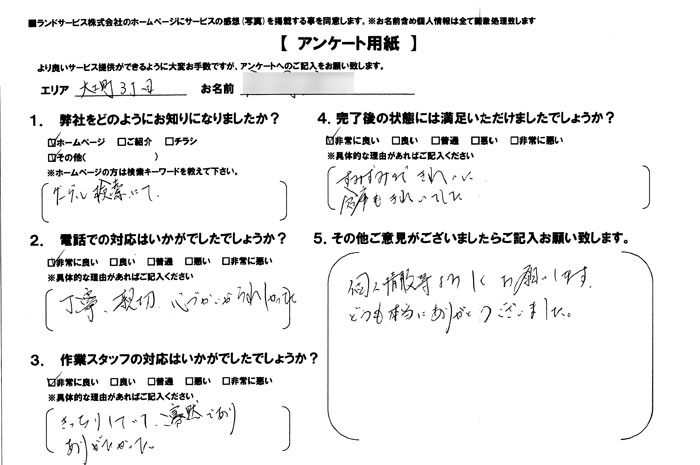 ■ランドサービス株式会社のホームページにサービスの感想(写真)を掲載する事を同意します。※お名前含め個人情報は全て画象処理致します
【 アンケート用紙 】
より良いサービス提供ができるように大変お手数ですが、アンケートへのご記入をお願い致します。
エリア 3丁目 お名前
1. 弊社をどのようにお知りになりましたか？
☑ホームページ □ご紹介 □チラシ
☑その他( )
※ホームページの方は検索キーワードを教えて下さい。
検索にて
2. 電話での対応はいかがでしたでしょうか？
☑非常に良い □良い □普通 □悪い □非常に悪い
※具体的な理由があればご記入ください
丁寧、親切、心づかいがうれしかった
3. 作業スタッフの対応はいかがでしたでしょうか？
☑非常に良い □良い □普通 □悪い □非常に悪い
※具体的な理由があればご記入ください
きっちりしていて、
ありがたかった
4. 完了後の状態には満足いただけましたでしょうか？
☑非常に良い □良い □普通 □悪い □非常に悪い
※具体的な理由があればご記入ください
すみずみまできれいに
倉庫もきれいでした
5. その他ご意見がございましたらご記入お願い致します。
個人情報等よろしくお願いします。
どうも本当にありがとうございました。